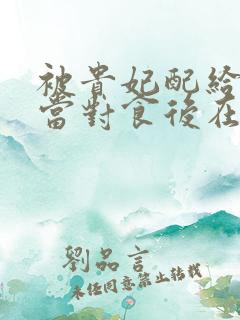 被貴妃配給
當對食後在
劉品言
未經同意禁止轉載